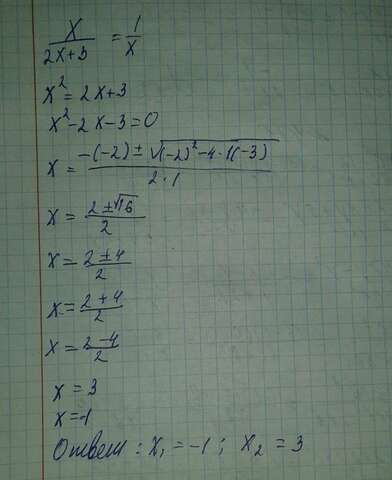 x/(2x+3) = 1/x
x² = 2x+3
x² - 2x - 3 = 0
x = (-(-2) ± √((-2)² - 4·1(-3)))/(2·1)
x = (2 ± √16)/2
x = (2 ± 4)/2
x = (2 + 4)/2
x = (2 - 4)/2
x = 3
x = -1
Ответ: x₁ = -1; x₂ = 3